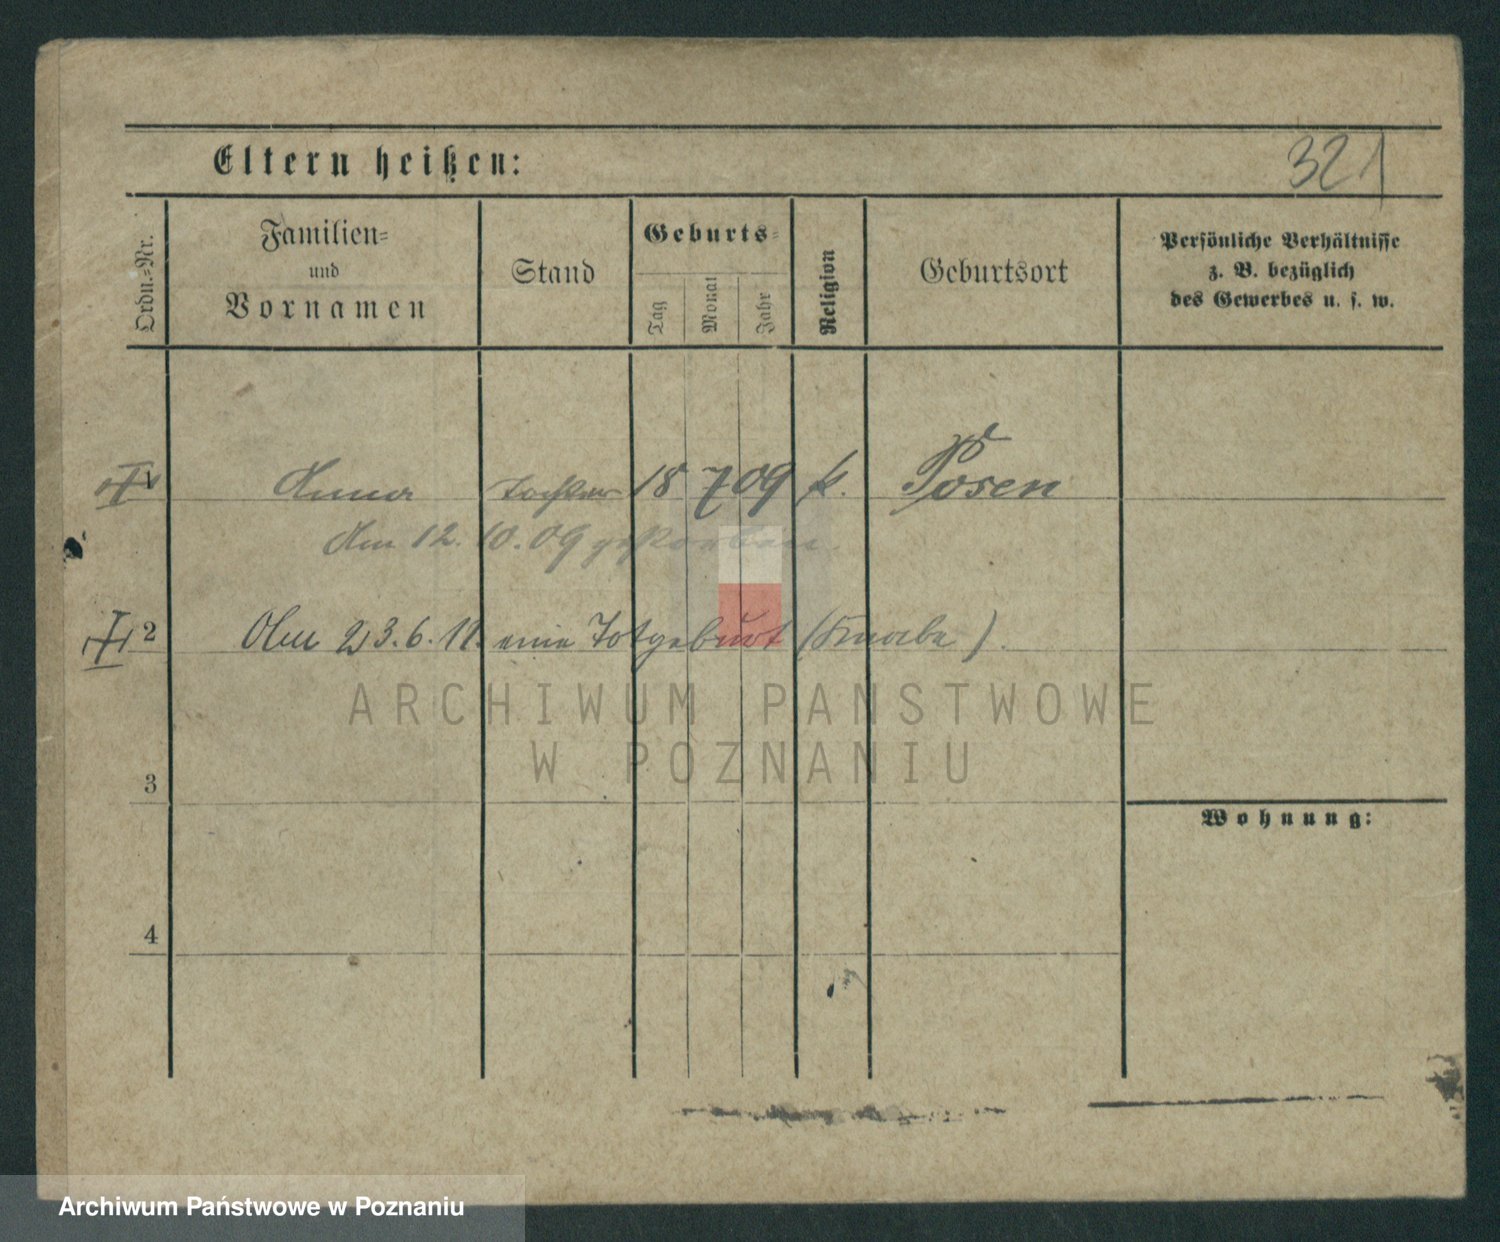 Eltern heißen:
321
Ordn.-Nr.
Familien-
und
Vornamen
Stand
Geburts-
Tag
Monat
Jahr
Religion
Geburtsort
Persönliche Verhältnisse
z. B. bezüglich
des Gewerbes u. s. w.
1 Anna Tochter 18 7 09 k. Posen
Am 12. 10. 09 gestorben.
2 Am 23.6.11. eine Totgeburt (Knabe).
ARCHIWUM PAŃSTWOWE
W POZNANIU
3
Wohnung:
4
Archiwum Państwowe w Poznaniu